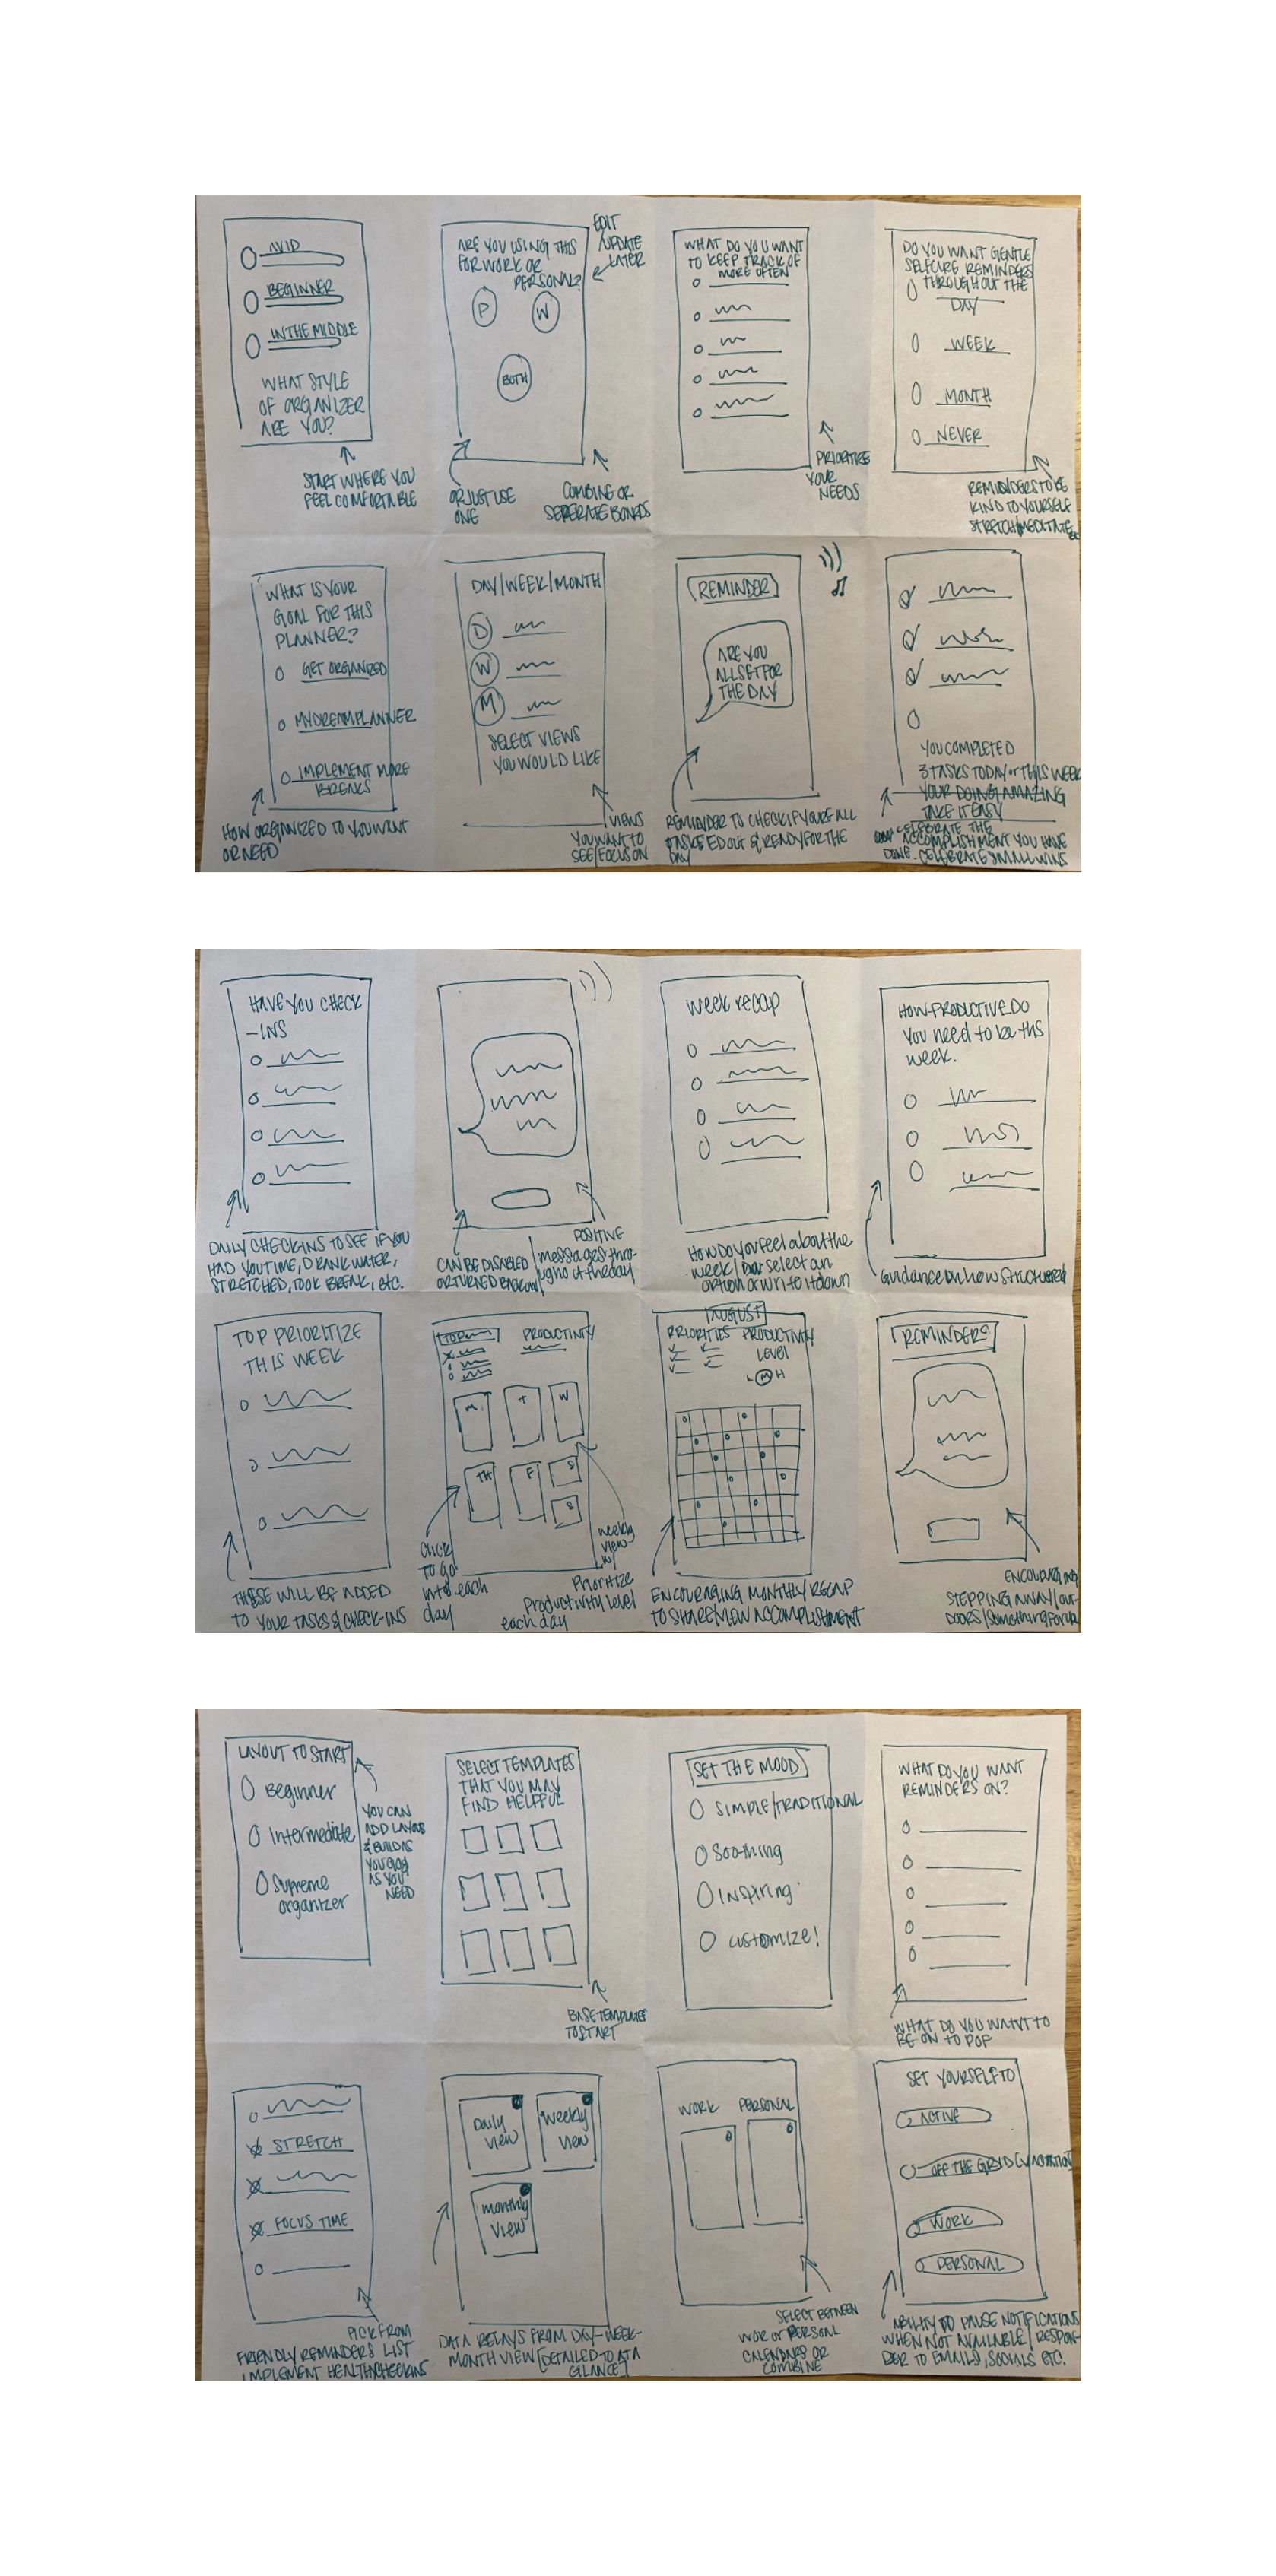 AVID
BEGINNER
IN THE MIDDLE
WHAT STYLE
OF ORGANIZER
ARE YOU?
START WHERE YOU
FEEL COMFORTABLE
ARE YOU USING THIS
FOR WORK OR
PERSONAL?
P
W
BOTH
EDIT
/UPDATE
LATER
OR JUST USE
ONE
COMBINE OR
SEPERATE BOARDS
WHAT DO YOU WANT
TO KEEP TRACK OF
MORE OFTEN
PRIORITIZE
YOUR
NEEDS
DO YOU WANT GENTLE
SELFCARE REMINDERS
THROUGHOUT THE
DAY
WEEK
MONTH
NEVER
REMINDERS TO BE
KIND TO YOURSELF
STRETCH/MEDITATE
WHAT IS YOUR
GOAL FOR THIS
PLANNER?
GET ORGANIZED
MY DREAM PLANNER
IMPLEMENT MORE
BREAKS
HOW ORGANIZED TO YOU WANT
OR NEED
DAY/WEEK/MONTH
D
W
M
SELECT VIEWS
YOU WOULD LIKE
VIEWS
YOU WANT TO
SEE/FOCUS ON
REMINDER
ARE YOU
ALL SET FOR
THE DAY
REMINDER TO CHECK IF YOURE ALL
TASKED OUT & READY FOR THE
DAY
YOU COMPLETED
3 TASKS TODAY or THIS WEEK
YOUR DOING AMAZING
TAKE IT EASY
CELEBRATE THE
ACCOMPLISHMENT YOU HAVE
DONE. CELEBRATE SMALL WINS
HAVE YOU CHECK
-INS
DAILY CHECKINS TO SEE IF YOU
HAD YOU TIME, DRANK WATER,
STRETCHED, TOOK BREAK, ETC.
CAN BE DISABLED
OR TURNED
POSITIVE
messages thro-
ughout the day
week recap
HOW DO YOU feel about the
week/ select an
option or write it down
HOW PRODUCTIVE DO
YOU need to be this
week.
Guidance on how structured
TOP PRIORITIZE
THIS WEEK
THESE WILL BE ADDED
TO YOUR TASKS & CHECK-INS
TOP
PRODUCTIVITY
M
T
W
TH
F
S
S
CLICK
TO GO
into each
day
weekly
view
w/
Prioritize
Productivity level
each day
AUGUST
PRIORITIES PRODUCTIVITY
Level
L M H
ENCOURAGING MONTHLY RECAP
TO SHARE/HOW ACCOMPLISHMENT
REMINDERS
ENCOURAGING
STEPPING AWAY/OUT-
DOORS/something for
LAYOUT TO START
Beginner
Intermediate
Supreme
organizer
YOU CAN
ADD LAYOUT
& BUILD AS
YOU GO
AS YOU
NEED
SELECT TEMPLATES
THAT YOU MAY
FIND HELPFUL
BASE TEMPLATES
TO START
SET THE MOOD
SIMPLE/TRADITIONAL
Soothing
INspiring
CUSTOMIZE!
WHAT DO YOU WANT
REMINDERS ON?
WHAT DO YOU WANT TO
BE ON TO POP
STRETCH
FOCUS TIME
PICK FROM
FRIENDLY REMINDERS LIST
IMPLEMENT HEALTH CHECKINS
Daily
View
Weekly
View
monthly
View
DATA RELAYS FROM DAY-WEEK-
MONTH VIEW (DETAILED TO AT A
GLANCE)
WORK
PERSONAL
SELECT BETWEEN
WORK or PERSONAL
CALENDARS OR
COMBINE
SET YOURSELF TO
ACTIVE
OFF THE GRID (VACATION)
WORK
PERSONAL
ABILITY TO PAUSE NOTIFICATIONS
WHEN NOT AVAILABLE/RESPON-
DER TO EMAILS, SOCIALS ETC.